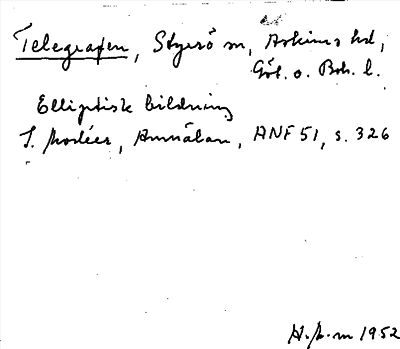 Telegrafen, Styrsö sn, Askims hd,
Göt. o. Boh. l.
Elliptisk bildning
I. Modéer, Anmälan, ANF 51, s. 326
1952